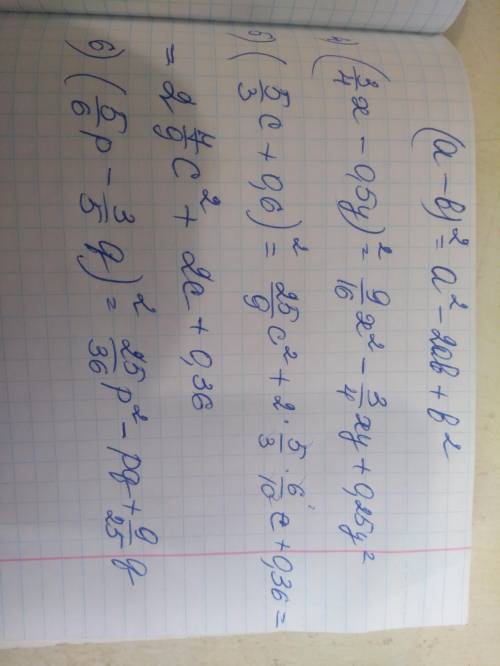 (a - b)² = a² - 2ab + b²
а) (3/4 x - 0,5y)² = 9/16 x² - 3/4 xy + 0,25y²
б) (5/3 c + 0,6)² = 25/9 c² + 2 · 5/3 · 6/10 c + 0,36 =
= 2 4/9 c² + 2c + 0,36
в) (5/6 p - 3/5 q)² = 25/36 p² - pq + 9/25 q